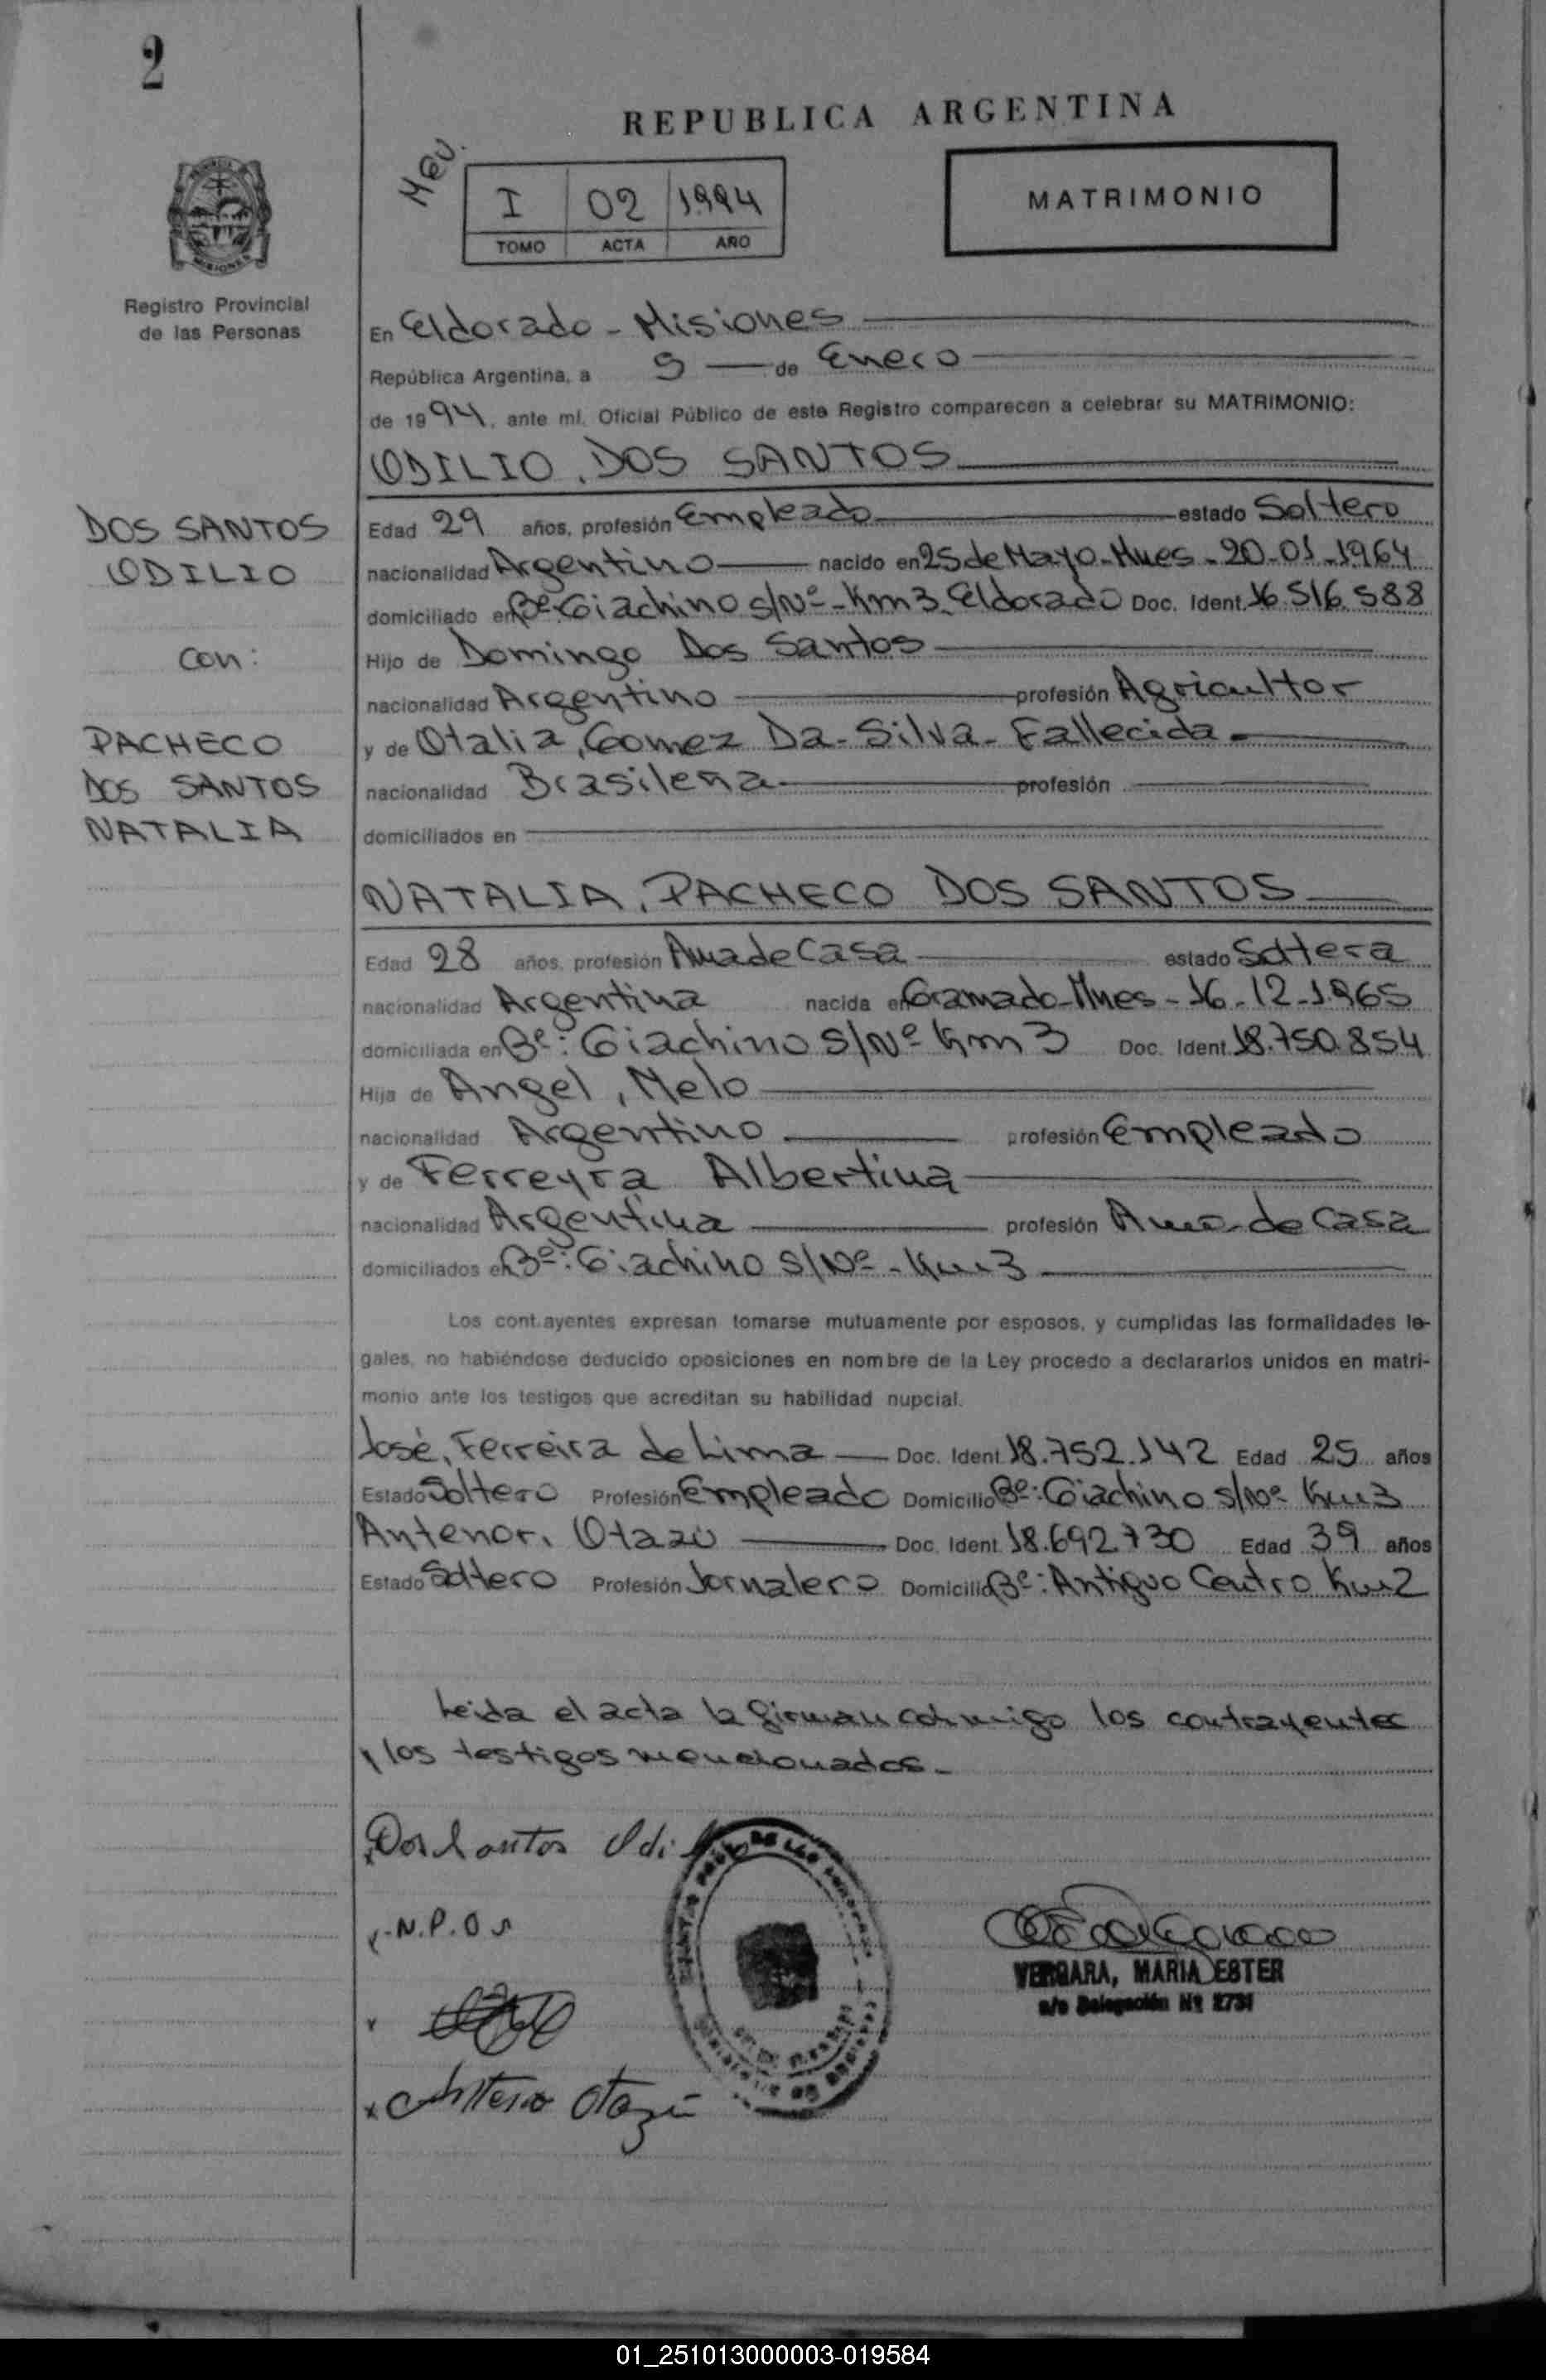 2
REPUBLICA ARGENTINA
I 02 1994
TOMO ACTA AÑO
MATRIMONIO
MISIONES
Registro Provincial
de las Personas
En Eldorado - Misiones
República Argentina, a 9 de Enero
de 1994, ante mí, Oficial Público de este Registro comparecen a celebrar su MATRIMONIO:
ODILIO, DOS SANTOS
DOS SANTOS
ODILIO
con:
PACHECO
DOS SANTOS
NATALIA
Edad 29 años, profesión Empleado estado Soltero
nacionalidad Argentino nacido en 25 de Mayo - Mnes - 20-01-1964
domiciliado en Bº: Giachino S/Nº - Km 3 Eldorado Doc. Ident. 16.516.588
Hijo de Domingo Dos Santos
nacionalidad Argentino profesión Agricultor
y de Otalia, Gomez Da-Silva - Fallecida -
nacionalidad Brasileña profesión
domiciliados en
NATALIA, PACHECO DOS SANTOS
Edad 28 años, profesión Ama de Casa estado Soltera
nacionalidad Argentina nacida en Gramado - Mnes - 16-12-1965
domiciliada en Bº: Giachino S/Nº Km 3 Doc. Ident. 18.750.854
Hija de Angel, Melo
nacionalidad Argentino profesión Empleado
y de Ferreyra Albertina
nacionalidad Argentina profesión Ama de Casa
domiciliados en Bº: Giachino S/Nº - Km 3
Los contrayentes expresan tomarse mutuamente por esposos, y cumplidas las formalidades le-
gales, no habiéndose deducido oposiciones en nombre de la Ley procedo a declararlos unidos en matri-
monio ante los testigos que acreditan su habilidad nupcial.
José, Ferreira de Lima Doc. Ident. 18.752.142 Edad 25 años
Estado Soltero Profesión Empleado Domicilio Bº: Giachino S/Nº Km 3
Antenor, Otazu Doc. Ident. 18.692.730 Edad 39 años
Estado Soltero Profesión Jornalero Domicilio Bº: Antiguo Centro Km 2
Leida el acta la firman conmigo los contrayentes
y los testigos mencionados.-
Dos Santos Odi
N.P.O
VERGARA, MARIA ESTER
a/c Delegación Nº 2731
Antenor Otazú
01_251013000003-019584